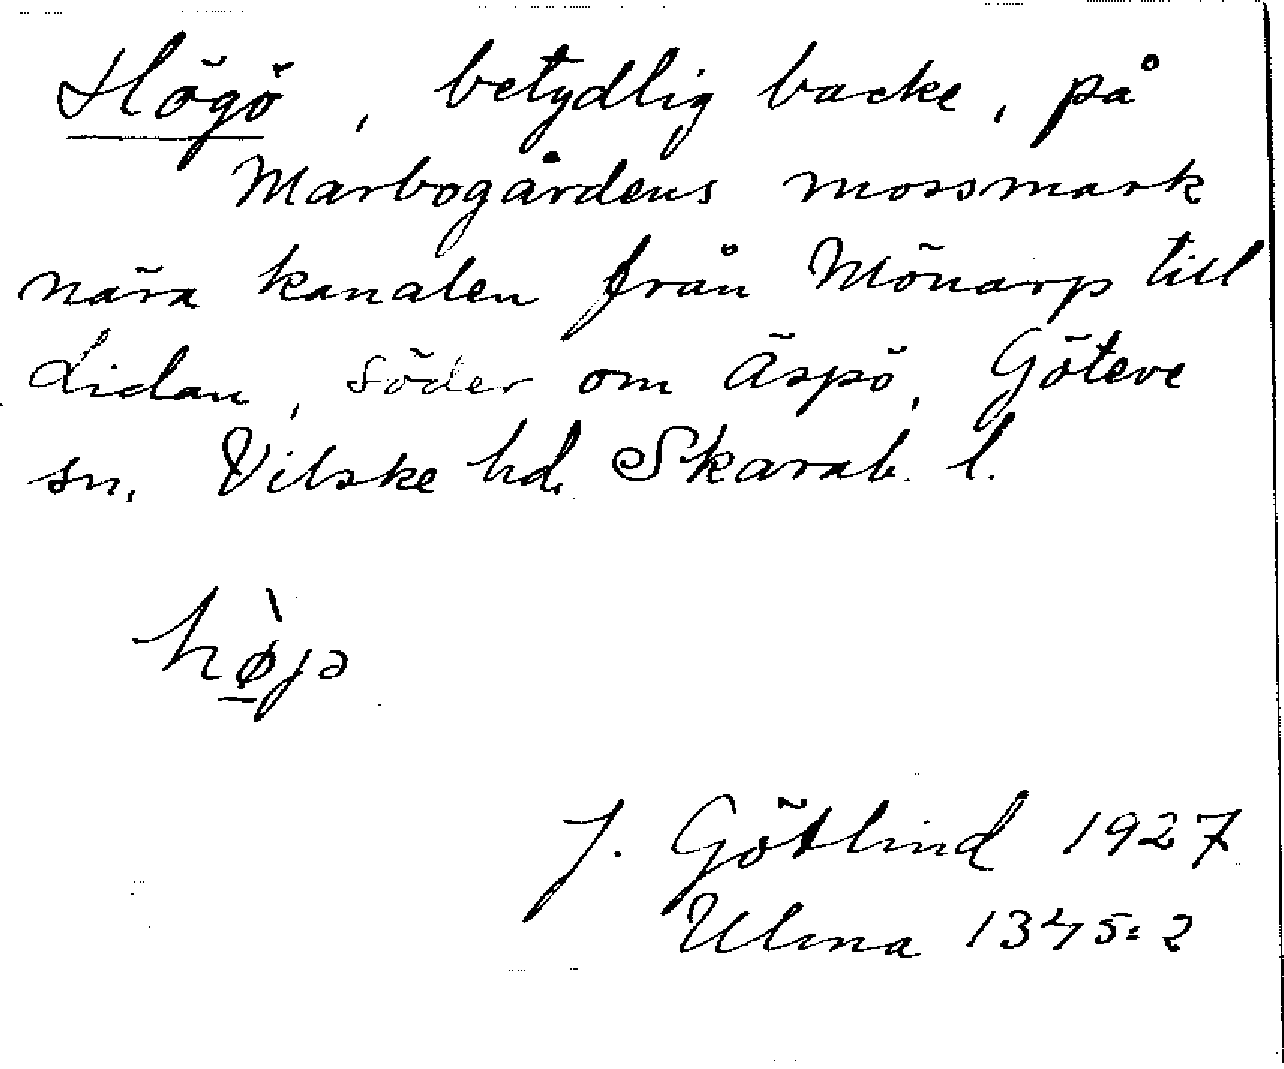 Högö, betydlig backe, på
Marbogårdens mossmark
nära kanalen från Mönarp till
Lidan, söder om Äspö, Göteve
sn, Vilske hd. Skarab. l.
hø̀jə
J. Götlind 1927
Ulma 1345:2